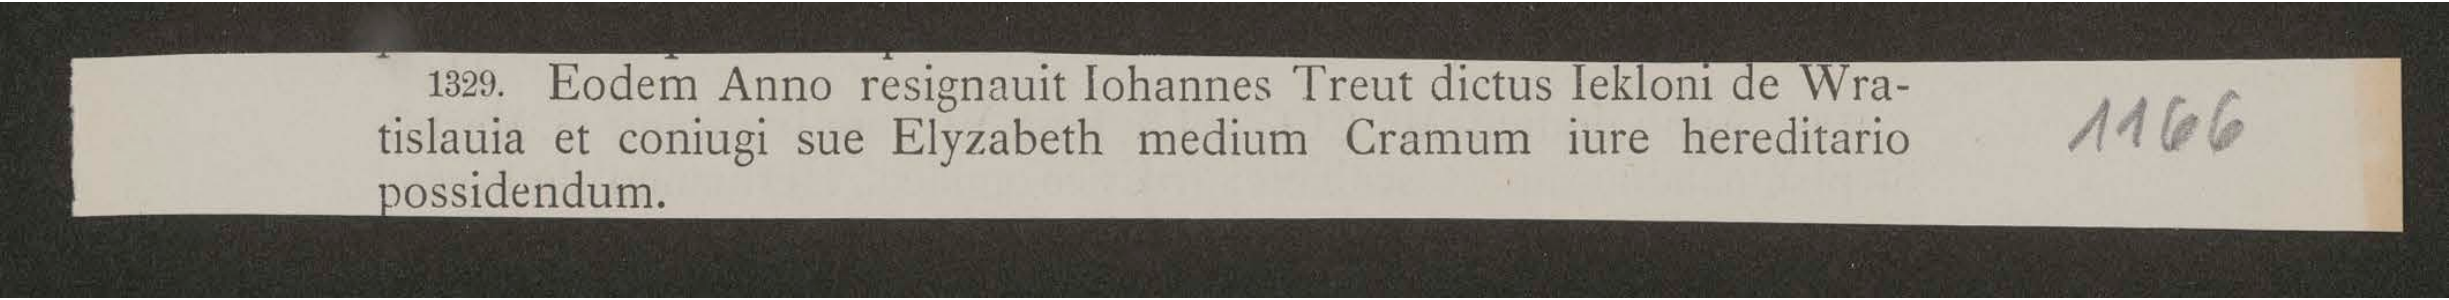 1329. Eodem Anno resignauit Iohannes Treut dictus Iekloni de Wra-
tislauia et coniugi sue Elyzabeth medium Cramum iure hereditario
possidendum.
1166